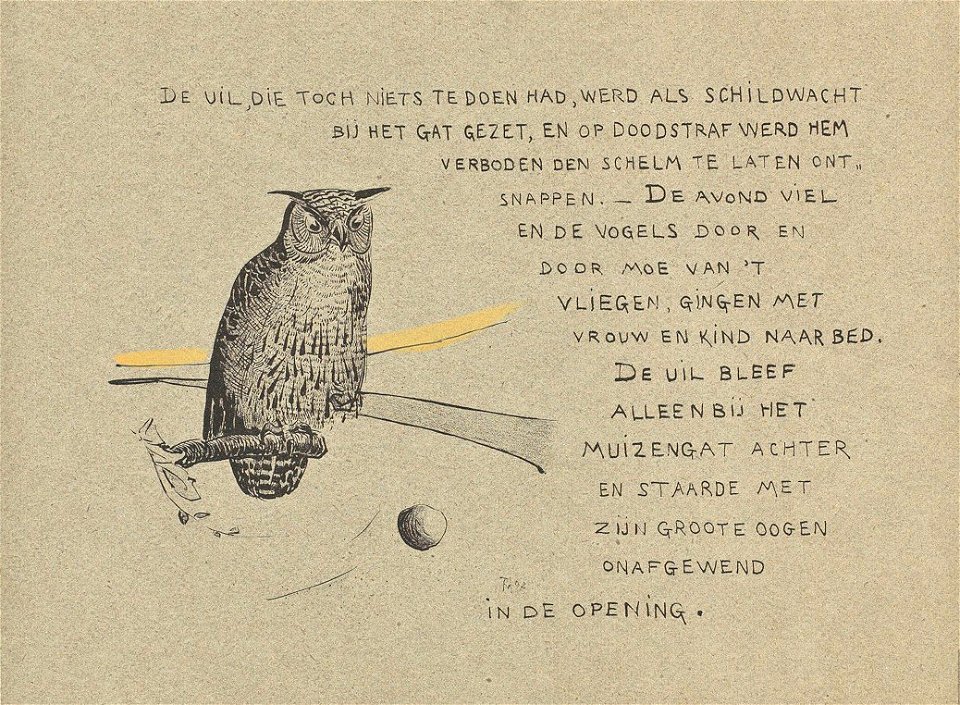 DE UIL, DIE TOCH NIETS TE DOEN HAD, WERD ALS SCHILDWACHT
BIJ HET GAT GEZET, EN OP DOODSTRAF WERD HEM
VERBODEN DEN SCHELM TE LATEN ONT„
SNAPPEN. — DE AVOND VIEL
EN DE VOGELS DOOR EN
DOOR MOE VAN 'T
VLIEGEN, GINGEN MET
VROUW EN KIND NAAR BED.
DE UIL BLEEF
ALLEEN BIJ HET
MUIZENGAT ACHTER
EN STAARDE MET
ZIJN GROOTE OOGEN
ONAFGEWEND
IN DE OPENING.